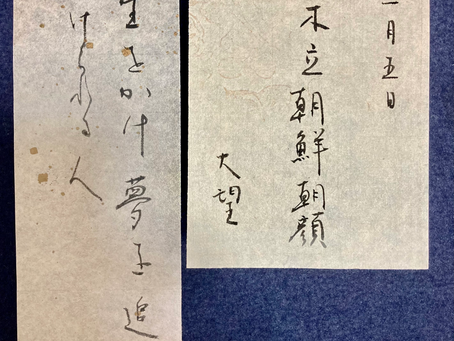 月五日
木立朝鮮朝顔
大望
生をかけ夢を追
けられる人